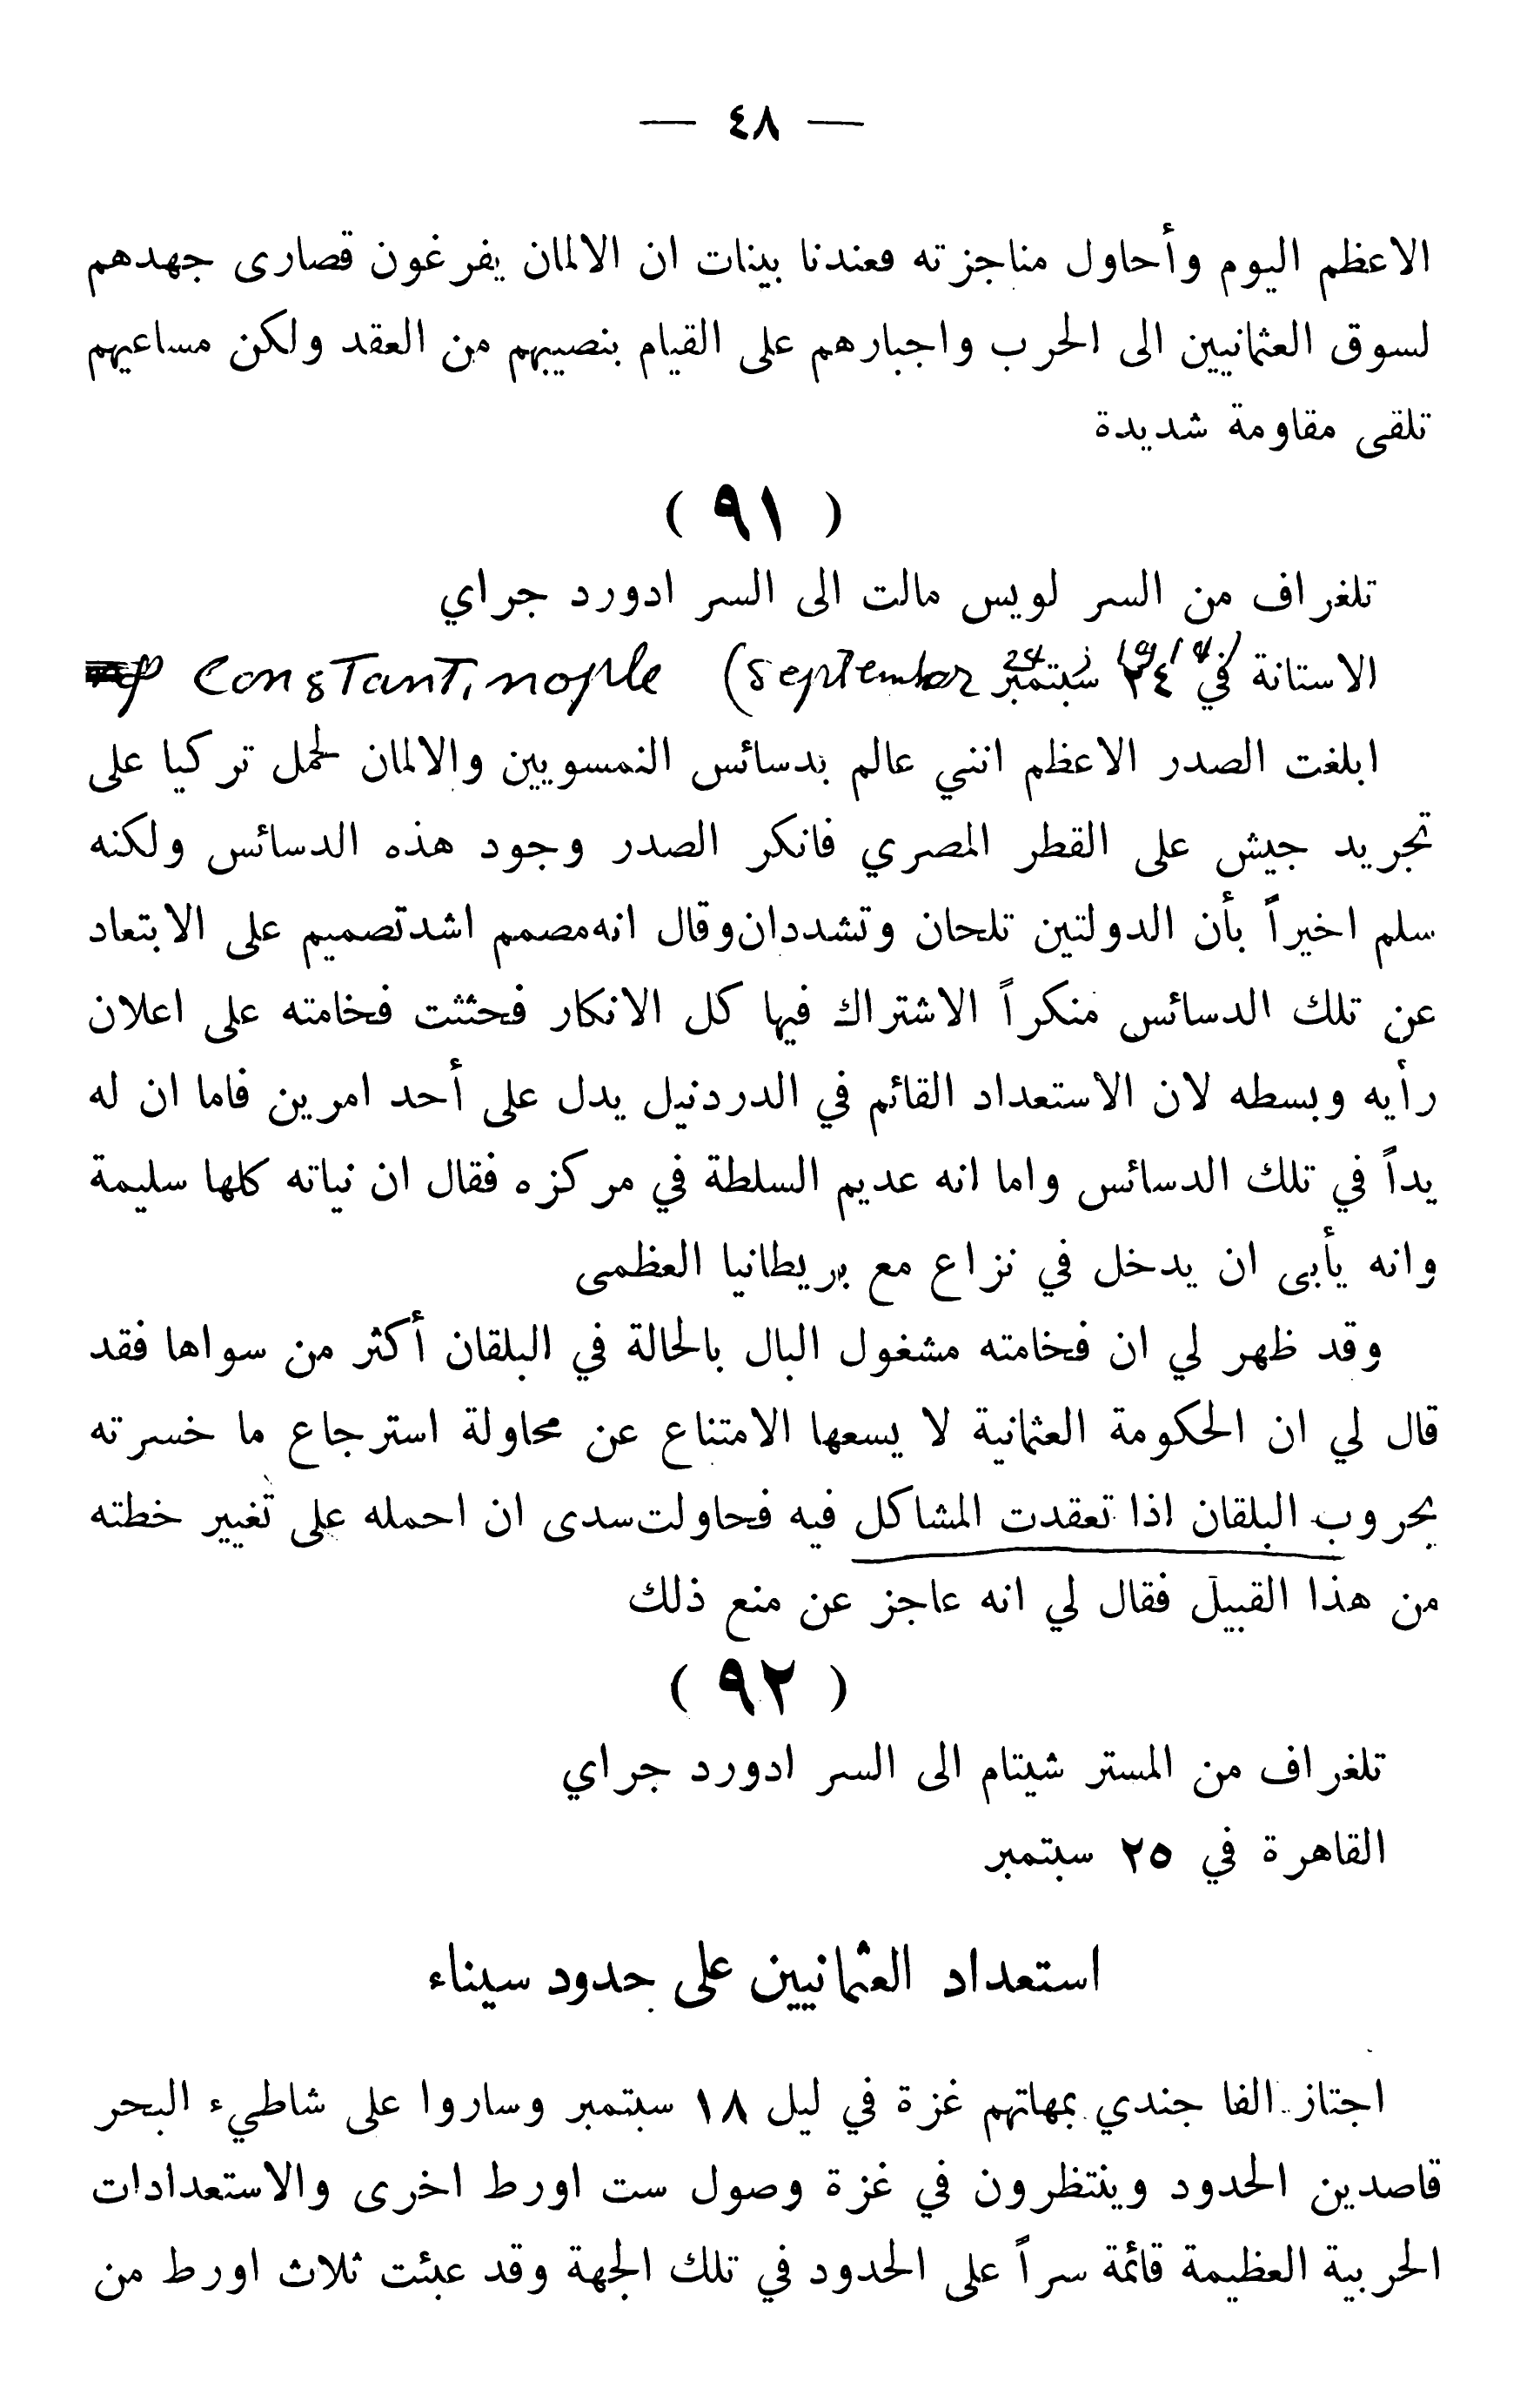 — ٤٨ —
الاعظم اليوم وأحاول مناجزته فعندنا بينات ان الالمان يفرغون قصارى جهدهم
لسوق العثمانيين الى الحرب واجبارهم على القيام بنصيبهم من العقد ولكن مساعيهم
تلقى مقاومة شديدة
( ٩١ )
تلغراف من السر لويس مالت الى السر ادورد جراي
الاستانة في ٢٤ سبتمبر (September 24 1914) Constantinople
ابلغت الصدر الاعظم انني عالم بدسائس النمسويين والالمان لحمل تركيا على
تجريد جيش على القطر المصري فانكر الصدر وجود هذه الدسائس ولكنه
سلم اخيراً بأن الدولتين تلحان وتشددان وقال انه مصمم اشد تصميم على الابتعاد
عن تلك الدسائس منكراً الاشتراك فيها كل الانكار فحثثت فخامته على اعلان
رأيه وبسطه لان الاستعداد القائم في الدردنيل يدل على أحد امرين فاما ان له
يداً في تلك الدسائس واما انه عديم السلطة في مركزه فقال ان نياته كلها سليمة
وانه يأبى ان يدخل في نزاع مع بريطانيا العظمى
وقد ظهر لي ان فخامته مشغول البال بالحالة في البلقان أكثر من سواها فقد
قال لي ان الحكومة العثمانية لا يسعها الامتناع عن محاولة استرجاع ما خسرته
بحروب البلقان اذا تعقدت المشاكل فيه فحاولت سدى ان احمله على تغيير خطته
من هذا القبيل فقال لي انه عاجز عن منع ذلك
( ٩٢ )
تلغراف من المستر شيتام الى السر ادورد جراي
القاهرة في ٢٥ سبتمبر
استعداد العثمانيين على حدود سيناء
اجتاز الفا جندي بمهاتهم غزة في ليل ١٨ سبتمبر وساروا على شاطيء البحر
قاصدين الحدود وينتظرون في غزة وصول ست اورط اخرى والاستعدادات
الحربية العظيمة قائمة سراً على الحدود في تلك الجهة وقد عبئت ثلاث اورط من